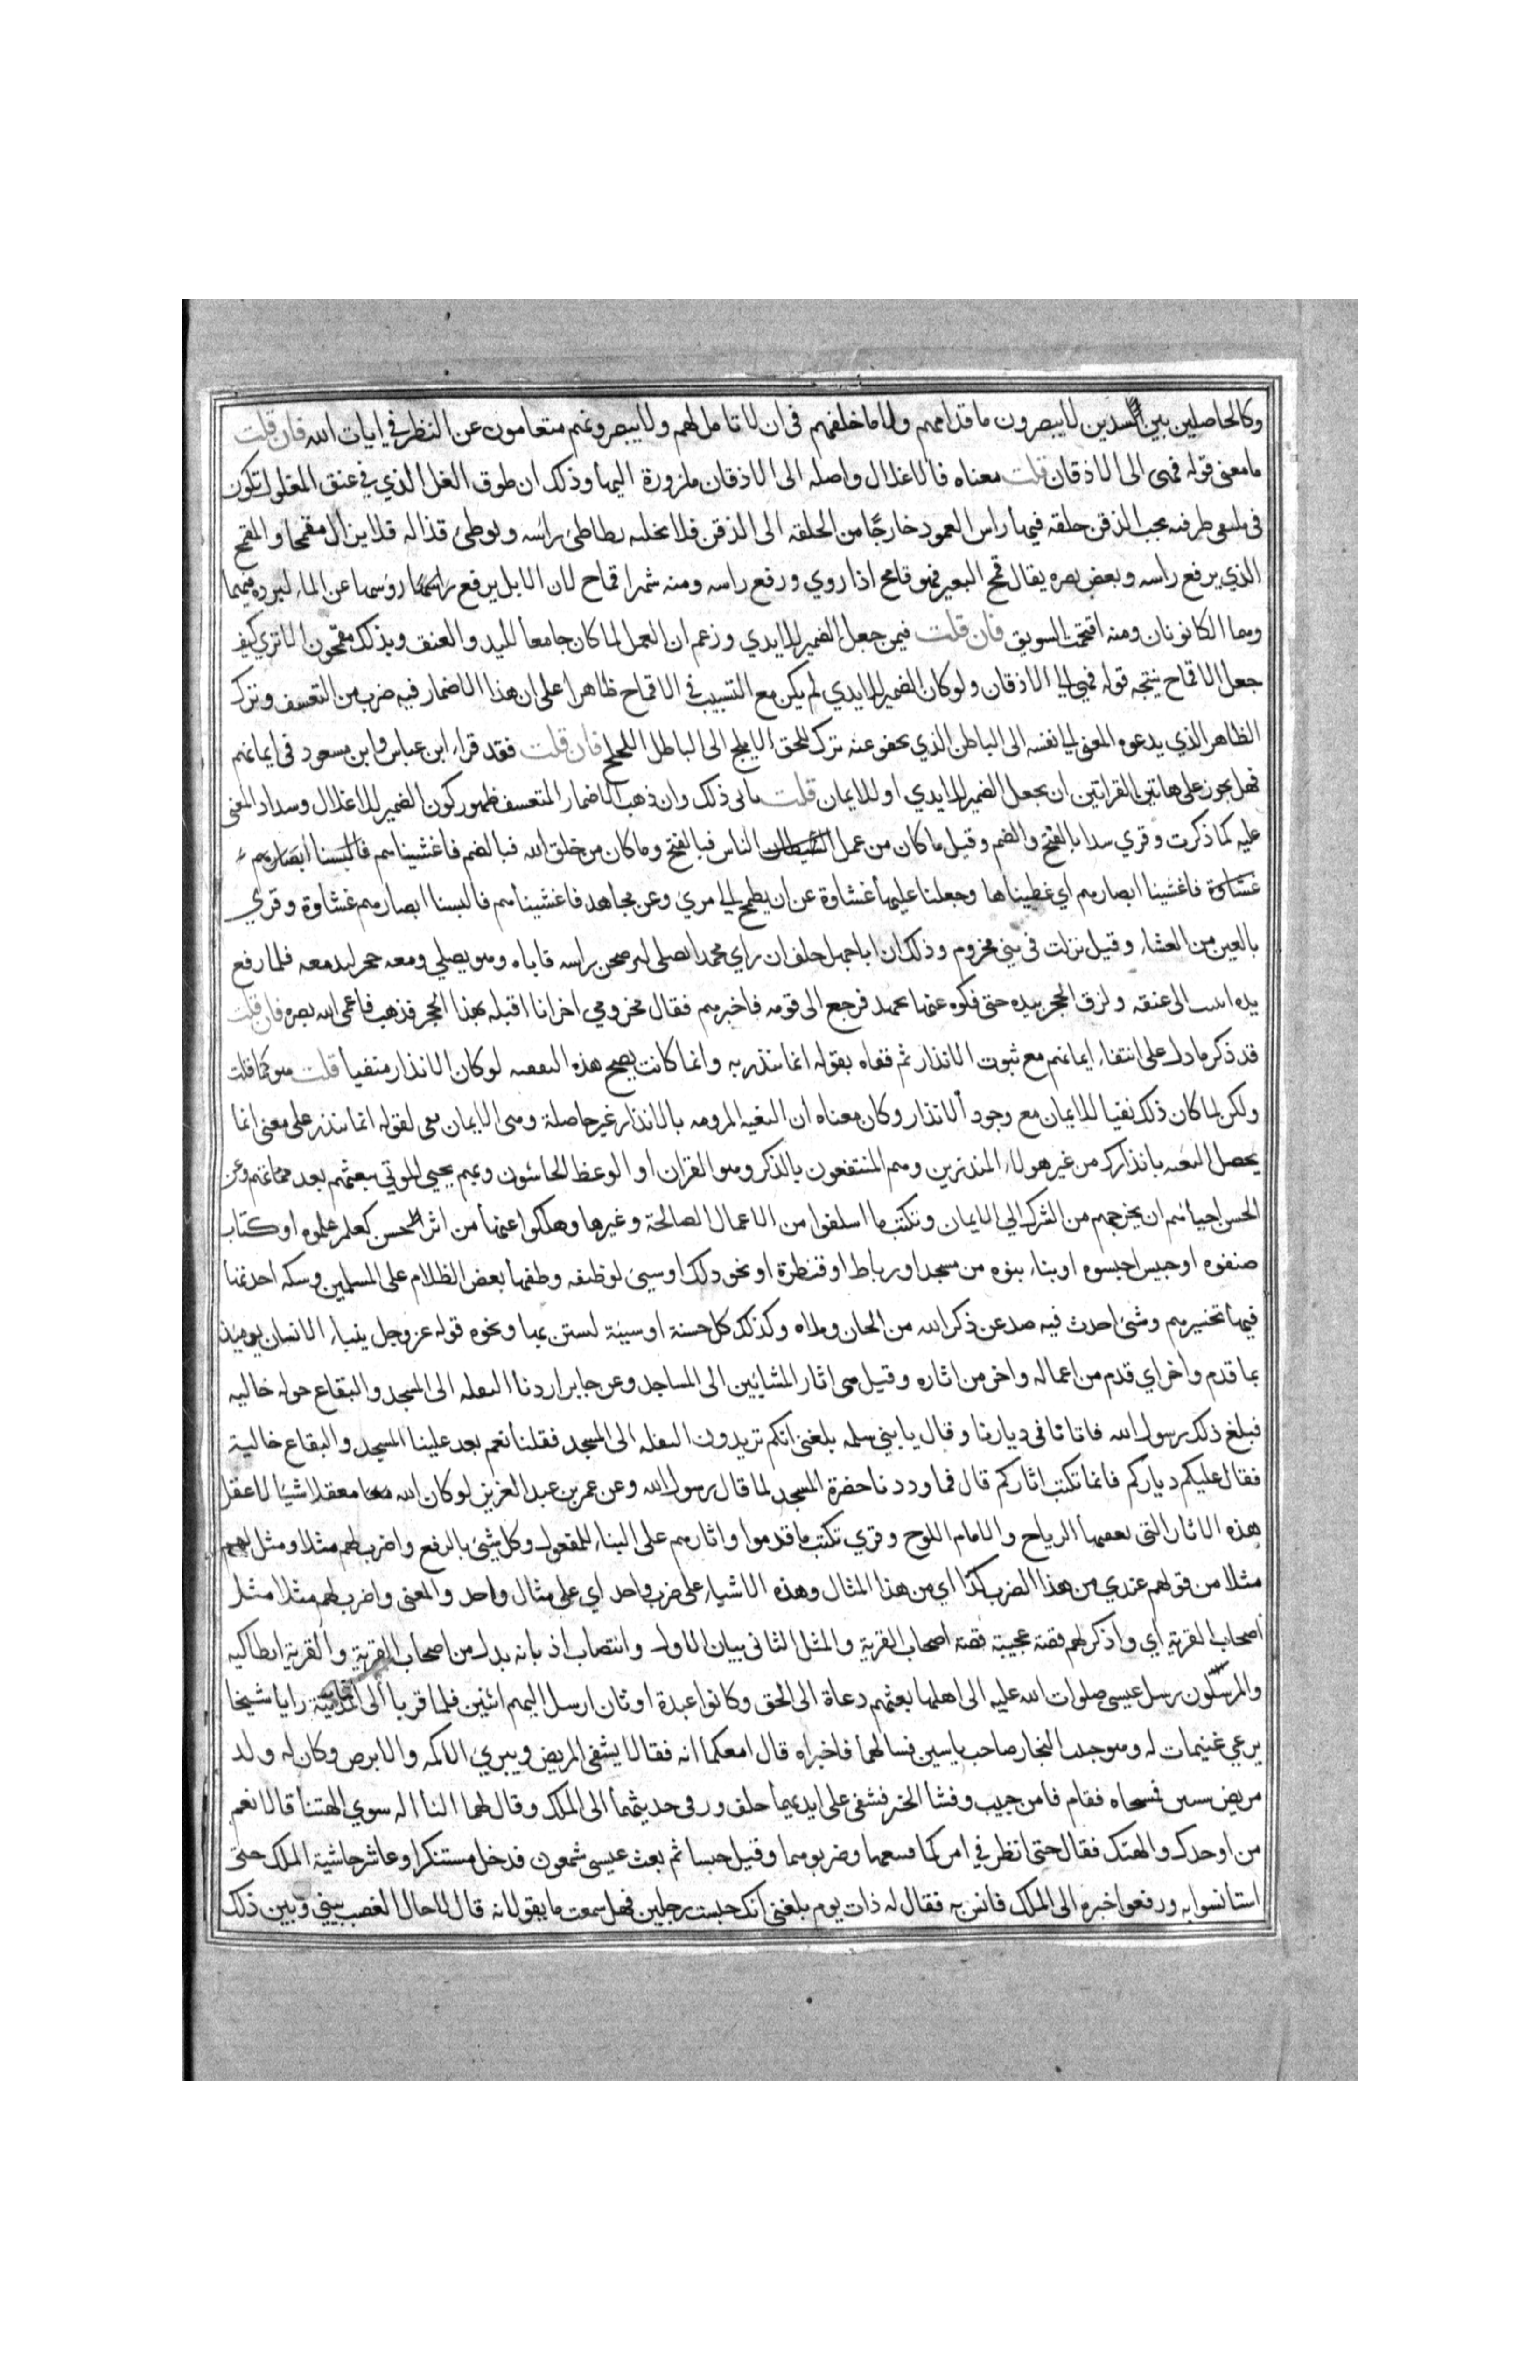 وكالحاصلين بين السدين لا يبصرون ما قدامهم ولا ما خلفهم فى ان لا تامل لهم ولا يبصرونهم متعامون عن النظر في ايات الله فان قلت
ما معنى قوله فهى الى الاذقان قلت معناه فالاغلال واصله الى الاذقان ملزوزة اليها وذلك ان طوق الغل الذي في عنق المغلول تكون
فى ملتقى طرفيه تحت الذقن حلقه فيها راس العمود خارجًا من الحلقه الى الذقن فلا يخليه يطاطئ راسه ويوطئ قذاله فلا يزال مقمحا والمقمح
الذي يرفع راسه وبغض بصره يقال قمح البعير فهو قامح اذا روي ورفع راسه ومنه شهرا قماح لان الابل يرفع روسها عن الماء لبرده فيهما
وهما الكانونان ومنه اقتمحت السويق فان قلت فيمن جعل الضمير للايدي وزعم ان الغل لما كان جامعا لليد والعنق وبذلك مقمحون الا تري كيف
جعل الاقماح نتيجه قوله فهى الي الاذقان ولو كان الضمير للايدي لم يكن مع التسبيب في الاقماح ظاهرا على ان هذا الاضمار فيه ضرب من التعسف وترك
الظاهر الذي يدعوه المعنى الي نفسه الى الباطن الذي يجفو عنه ترك للحق الابلج الى الباطل اللجلج فان قلت فقد قراء ابن عباس وابن مسعود فى ايمانهم
فهل يجوز على هاتين القراتين ان يجعل الضمير للايدي او للايمان قلت يابى ذلك وان ذهب الاضمار المتعسف ظهور كون الضمير للاغلال وسداد المعنى
عليه كما ذكرت وقري سدا بالفتح والضم وقيل ما كان من عمل الناس فبالفتح وما كان من خلق الله فبالضم فاغشيناهم فالبسنا ابصارهم
غشاوة فاغشينا ابصارهم اي غطيناها وجعلنا عليها غشاوة عن ان يطمح الي مريء وعن مجاهد فاغشيناهم فالبسنا ابصارهم غشاوة وقري
بالعين من العشاء وقيل نزلت فى بني مخزوم وذلك ان ابا جهل حلف ان راي محمدا يصلى ليرضخن راسه فاتاه وهو يصلي ومعه حجر ليدمغه فلما رفع
يده الى عنقه ولزق الحجر بيده حتى فكوه عنها بجهد فرجع الى قومه فاخبرهم فقال مخزومي اخر انا اقتله بهذا الحجر فذهب فاعمى الله بصره فان قلت
قد ذكر ما دل على انتفاء ايمانهم مع ثبوت الانذار ثم قفاه بقوله انما تنذر به وانما كانت يصح هذه التقفيه لو كان الانذار منفيا قلت هو كما قلت
ولكن لما كان ذلك نفيا للايمان مع وجود الانذار وكان معناه ان البغيه المرومه بالانذار غير حاصلة وهى الايمان قفى لقوله انما تنذر على معنى انما
يحصل البغيه بانذارك من غير هولاء المنذرين وهم المنتفعون بالذكر وهو القران او الوعظ الخاشون ربهم يحيي الموتي يبعثهم بعد مماتهم وعن
الحسن احياءهم ان يخرجهم من الشرك الي الايمان ونكتب ما اسلفوا من الاعمال الصالحة وغيرها وهلكوا عنها من اثر الحسن كعلم علموه او كتاب
صنفوه او حبيس احبسوه او بناء بنوه من مسجد او رباط او قنطرة او نحو ذلك او سيئ لوظيفه وظفها بعض الظلام على المسلمين وسكه احدثها
فيها تخسيرهم وشئ احدث فيه صد عن ذكر الله من الحان وملاه وكذلك كل حسنة او سيئة يستن بها ونحوه قوله عز وجل ينباء الانسان يومئذ
بما قدم واخر اي قدم من اعماله واخر من اثاره وقيل هى اثار المشائين الى المساجد وعن جابر اردنا النقله الى المسجد والبقاع حوله خاليه
فبلغ ذلك رسول الله فاتانا فى ديارنا وقال يا بني سلمه بلغنى انكم تريدون النقله الى المسجد فقلنا نعم بعد علينا المسجد والبقاع خالية
فقال عليكم دياركم فانما تكتب اثاركم قال فما وددنا حضرة المسجد لما قال رسول الله وعن عمر بن عبد العزيز لو كان الله مغفلا شيئا لاغفل
هذه الاثار التى تعفيها الرياح والامام اللوح وقري تكتب ما قدموا واثارهم على البناء للمفعول وكل شيئ بالرفع واضرب لهم مثلا ومثل لهم
مثلا من قولهم عندي من هذا الضرب كذا اي من هذا المثال وهذه الاشياء على ضرب واحد اي على مثال واحد والمعنى واضرب لهم مثلا مثل
اصحاب القرية اي واذكر لهم قصة عجيبة قصة اصحاب القرية والمثل الثانى بيان الاول وانتصاب اذ بانه بدل من اصحاب القرية والقرية انطاكيه
والمرسلون رسل عيسى صلوات الله عليه الى اهلها بعثهم دعاة الى الحق وكانوا عبدة اوثان ارسل اليهم اثنين فلما قربا الى المدينة رايا شيخا
يرعي غنيمات له وهو حبيب النجار صاحب ياسين فسالهما فاخبراه قال امعكما ايه فقالا يشفى المريض ويبري الاكمه والابرص وكان له ولد
مريض سنين فمسحاه فقام فامن حبيب وفشا الخبر فشفى على ايديهما خلق ورقى حديثهما الى الملك وقال لهما النا اله سوي الهتنا قالا نعم
من اوجدك والهتك فقال حتى انظر في امركما فتبعهما وضربوهما وقيل حبسا ثم بعث عيسى شمعون فدخل مستنكرا وعاشر حاشية الملك حتى
استانسوا به ورفعوا خبره الى الملك فانس به فقال له ذات يوم بلغنى انك حبست رجلين فهل سمعت ما يقولانه قال لا حال الغضب بيني وبين ذلك